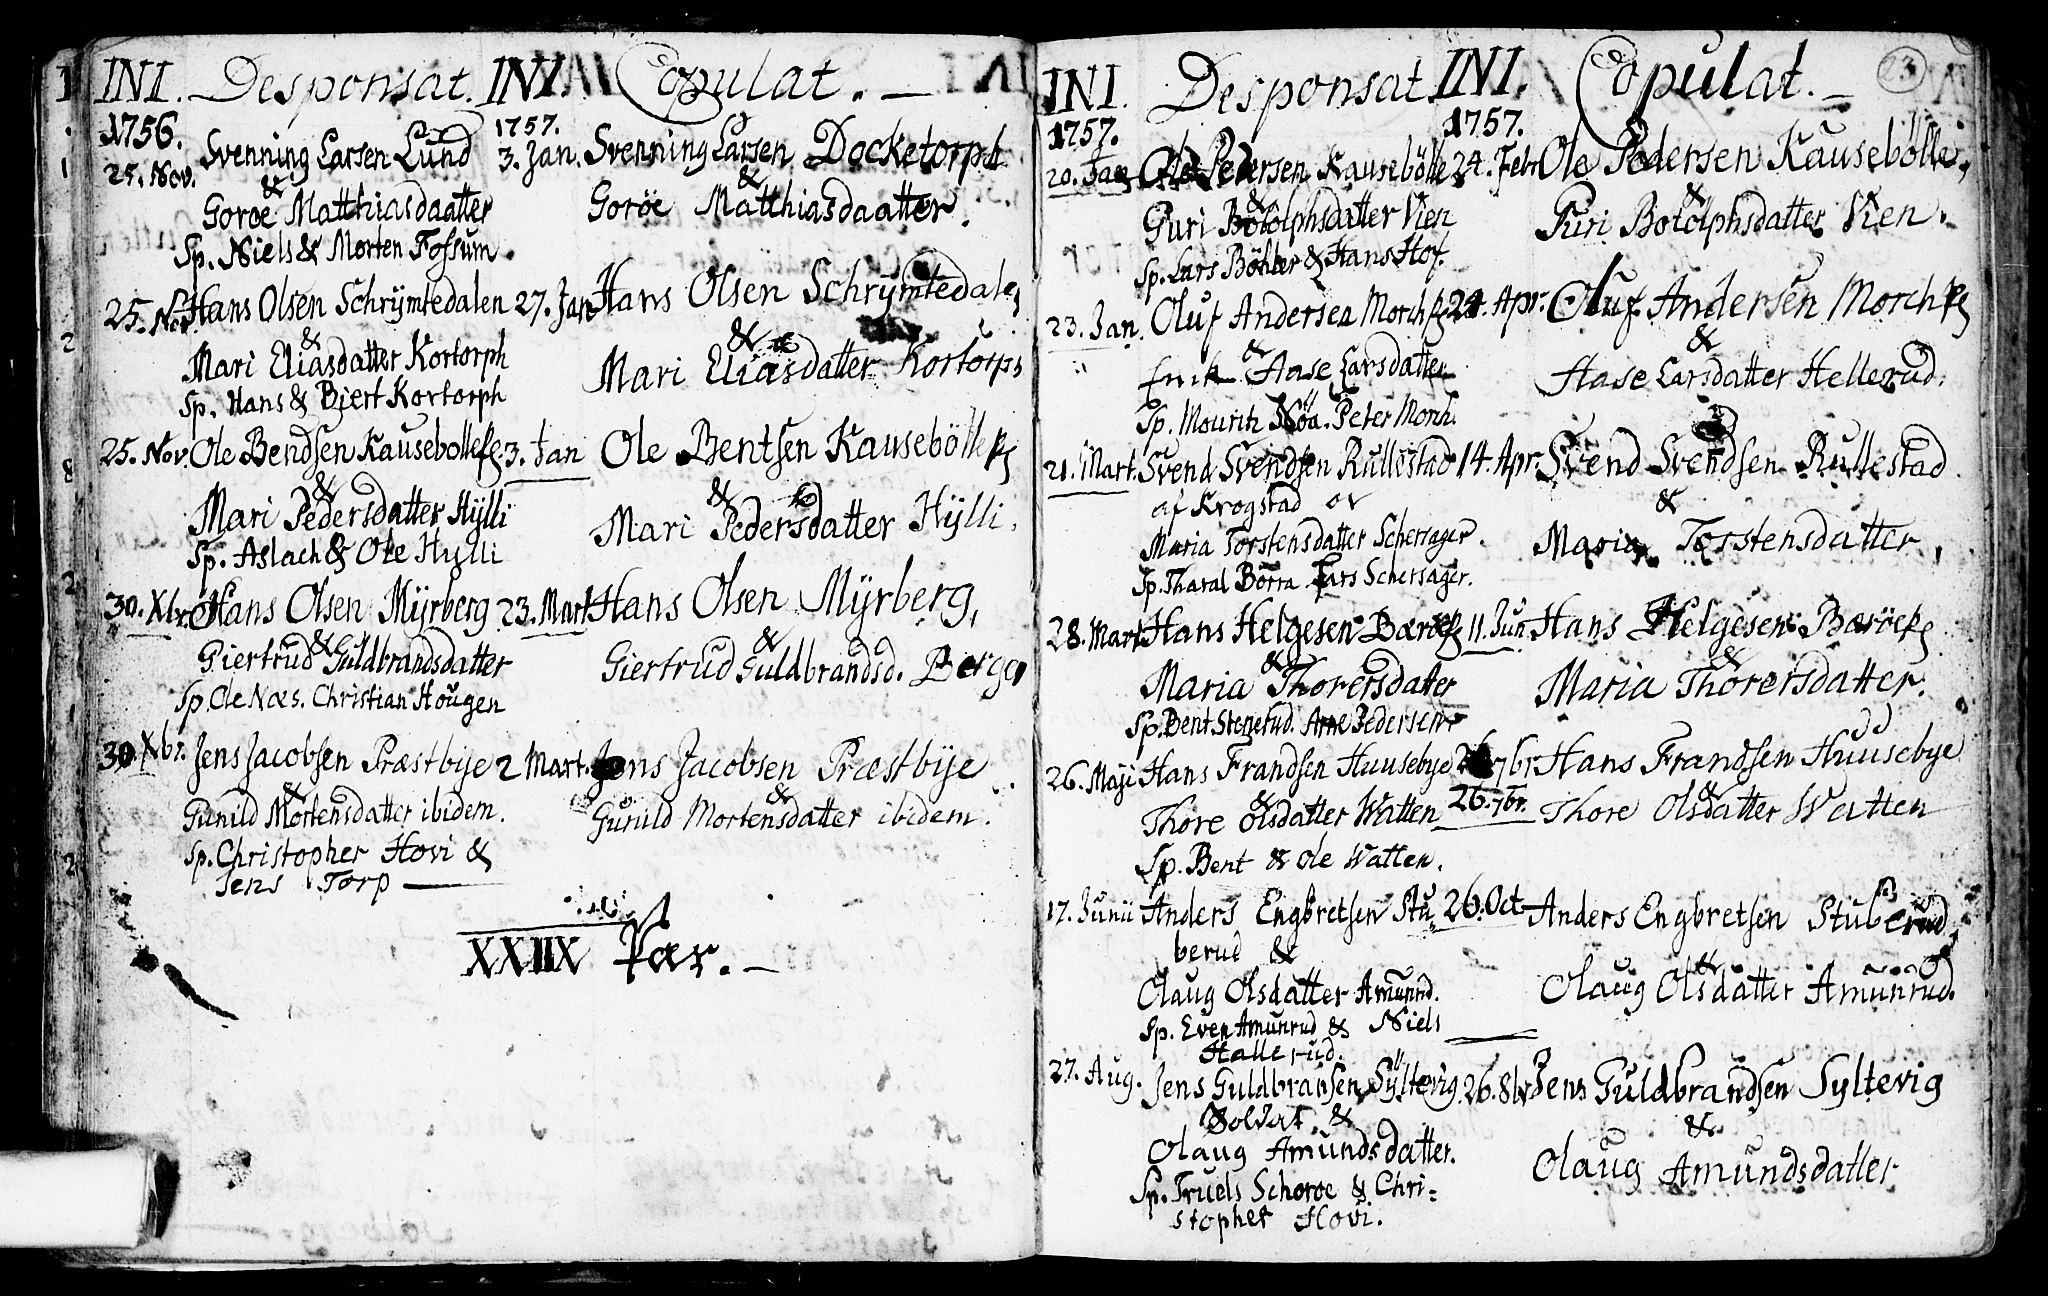 INI. Desponsat.
1756.
25. Nov. Svenning Larsen Lund
&
Goroe Matthiasdaatter
Sp. Niels & Morten Fossum.
25. Nov. Hans Olsen Schrÿmtedalen
&
Mari Eliasdatter Kortorph
Sp. Hans & Bjert Kortorph
25. Nov. Ole Bendsen Kausebølle
&
Mari Pedersdatter Hÿlli
Sp. Aslach & Ole Hylli
30. Xbr. Hans Olsen Mÿrberg
&
Giertrud Guldbrandsdatter
Sp. Ole Næs. Christian Hougen
30. Xbr. Jens Jacobsen Præstbÿe
&
Gunild Mortensdatter ibidem.
Sp. Christopher Hovi &
Jens Torp
INI. Copulat.
1757.
3. Jan. Svenning Larsen Docketorph
&
Goröe Matthiasdaatter.
27. Jan Hans Olsen Schrÿmtedalen
&
Mari Eliasdatter Kortorph
3. Jan Ole Bentsen Kausebölle
&
Mari Pedersdatter Hÿlli.
23. Mart Hans Olsen Mÿrberg,
&
Giertrud Guldbrandsd. Berge
2 Mart. Jens Jacobsen Præstbÿe
&
Gunild Mortensdatter ibidem.
XXIIX Par.
23
INI. Desponsat.
1757.
20. Jan Ole Pedersen Kausebölle
&
Guri Botolphsdatter Vien
Sp. Lars Böhler & Hans Hof.
23. Jan. Oluf Andersen Morch
&
Aase Larsdatter
Sp. Mouritz Moa. Peter Morch.
21. Mart. Svend Svendsen Rullestad
af Krogstad ov
Maria Torstensdatter Schersager.
Sp. Tharal Borra Lars Schersager.
28. Mart Hans Helgesen Bæröe
&
Maria Thorersdatter
Sp. Bent Stenerud. Arne Pedersen
26. Maji Hans Frandsen Huusebye
&
Thore Olsdatter Watten
Sp. Bent & Ole Watten.
17. Junii Anders Engbretsen Stu
berud &
Olaug Olsdatter Amunrd.
Sp. Even Amunrud & Niels
Hallerud.
27. Aug. Jens Guldbransen Syltevig
Soldat. &
Olaug Amundsdatter.
Sp. Truels Schoroe & Chri=
stopher Hovi.
INI. Copulat.
1757.
24. Febr Ole Pedersen Kausebölle,
&
Guri Botolphsdatter Vien.
24. Apr. Oluf Andersen Morch
&
Aase Larsdatter Hellerud.
14. Apr. Svend Svendsen Rullestad
&
Maria Torstensdatter,
11. Jun Hans Helgesen Bæröe
&
Maria Thorersdatter.
26. 7br Hans Frandsen Huusebye
&
26. 7br. Thore Olsdatter Watten
26. Oct Anders Engbretsen Stuberud
&
Olaug Olsdatter Amunrud.
26. 8br Jens Guldbrandsen Syltevig
&
Olaug Amundsdatter